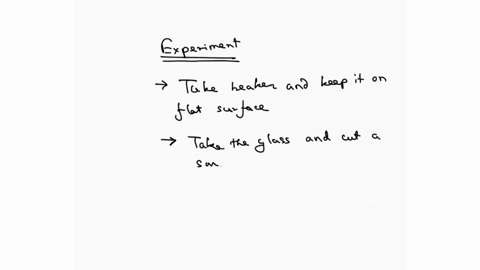 Experiment
→ Take beaker and keep it on
flat surface
→ Take the glass and cut a
sm